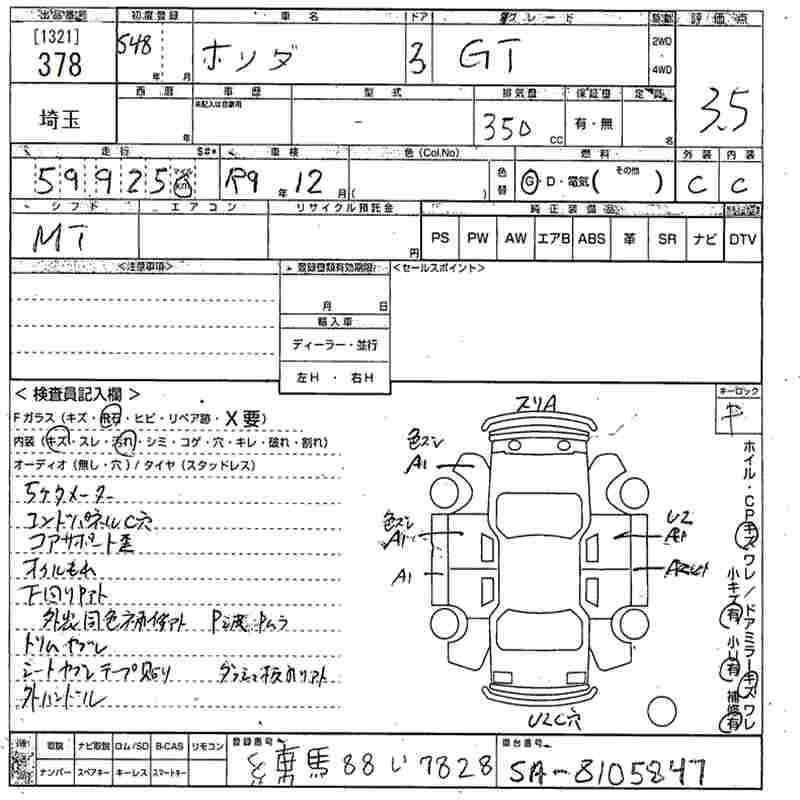 出品番号 初度登録 車名 ドア グレード 駆動 評価点
[1321]
378
S48 年 月
ホンダ
3
GT
2WD
4WD
3.5
埼玉
西暦 車歴 型式 排気量 保証書 定員
年
未記入は自家用
-
350 CC
有・無
名
走行 $#* 車検 色(Col.No) 燃料 外装 内装
59925 マイル km
R9年12月
( )
色替
G・D・電気( その他 )
C C
シフト エアコン リサイクル預託金 純正装備品
MT
円
PS PW AW エアB ABS 革 SR ナビ DTV
<注意事項> 登録書類有効期限 <セールスポイント>
月 日
輸入車
ディーラー・並行
左H ・ 右H
<検査員記入欄>
キーロック
Fガラス(キズ・飛石・ヒビ・リペア跡・X要)
内装(キズ・スレ・汚れ・シミ・コゲ・穴・キレ・破れ・割れ)
オーディオ(無し・穴)/タイヤ(スタッドレス)
5ケタメーター
コントロパネルC穴
コアサポート歪
オイルもれ
下回りサビアト
外出同色
トリムヤブレ
シートヤブレテープ貼り
外ハンドル
スリA
色ズレ
A1
色ズレ
A1
A1
U2
U2C穴
ホイル・CPキズワレ/ドアミラーキズワレ
小キズ有 小U有 補修有
取説 ナビ取説 ロム/SD B-CAS リモコン
ナンバー スペアキー キーレス スマートキー
登録番号
練馬 88 い 7828
車台番号
SA-8105847